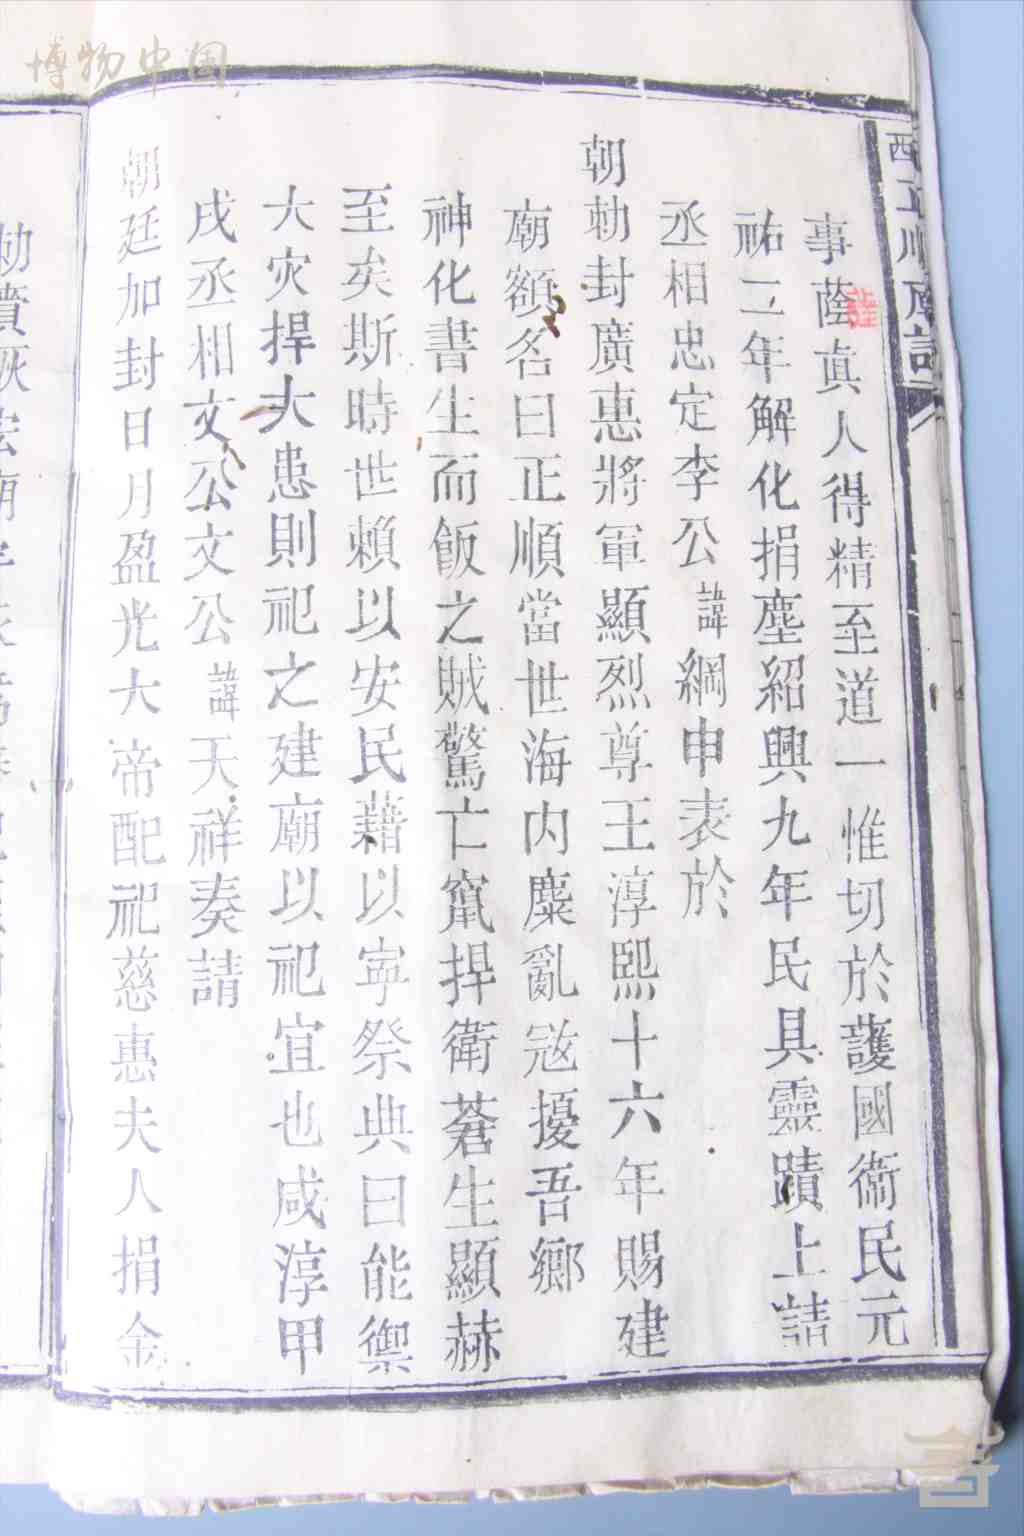 博物中国
事蔭真人得精至道一惟切於護國衛民元
祐二年解化捐塵紹興九年民具靈蹟上請
丞相忠定李公諱綱申表於
朝勅封廣惠將軍顯烈尊王淳熙十六年賜建
廟額名曰正順當世海内麋亂寇擾吾鄉
神化書生而飯之賊驚亡竄捍衛蒼生顯赫
至矣斯時世賴以安民藉以寧祭典曰能禦
大灾捍大患則祀之建廟以祀宜也咸淳甲
戌丞相文公文公諱天祥奏請
朝廷加封日月盈光大帝配祀慈惠夫人捐金